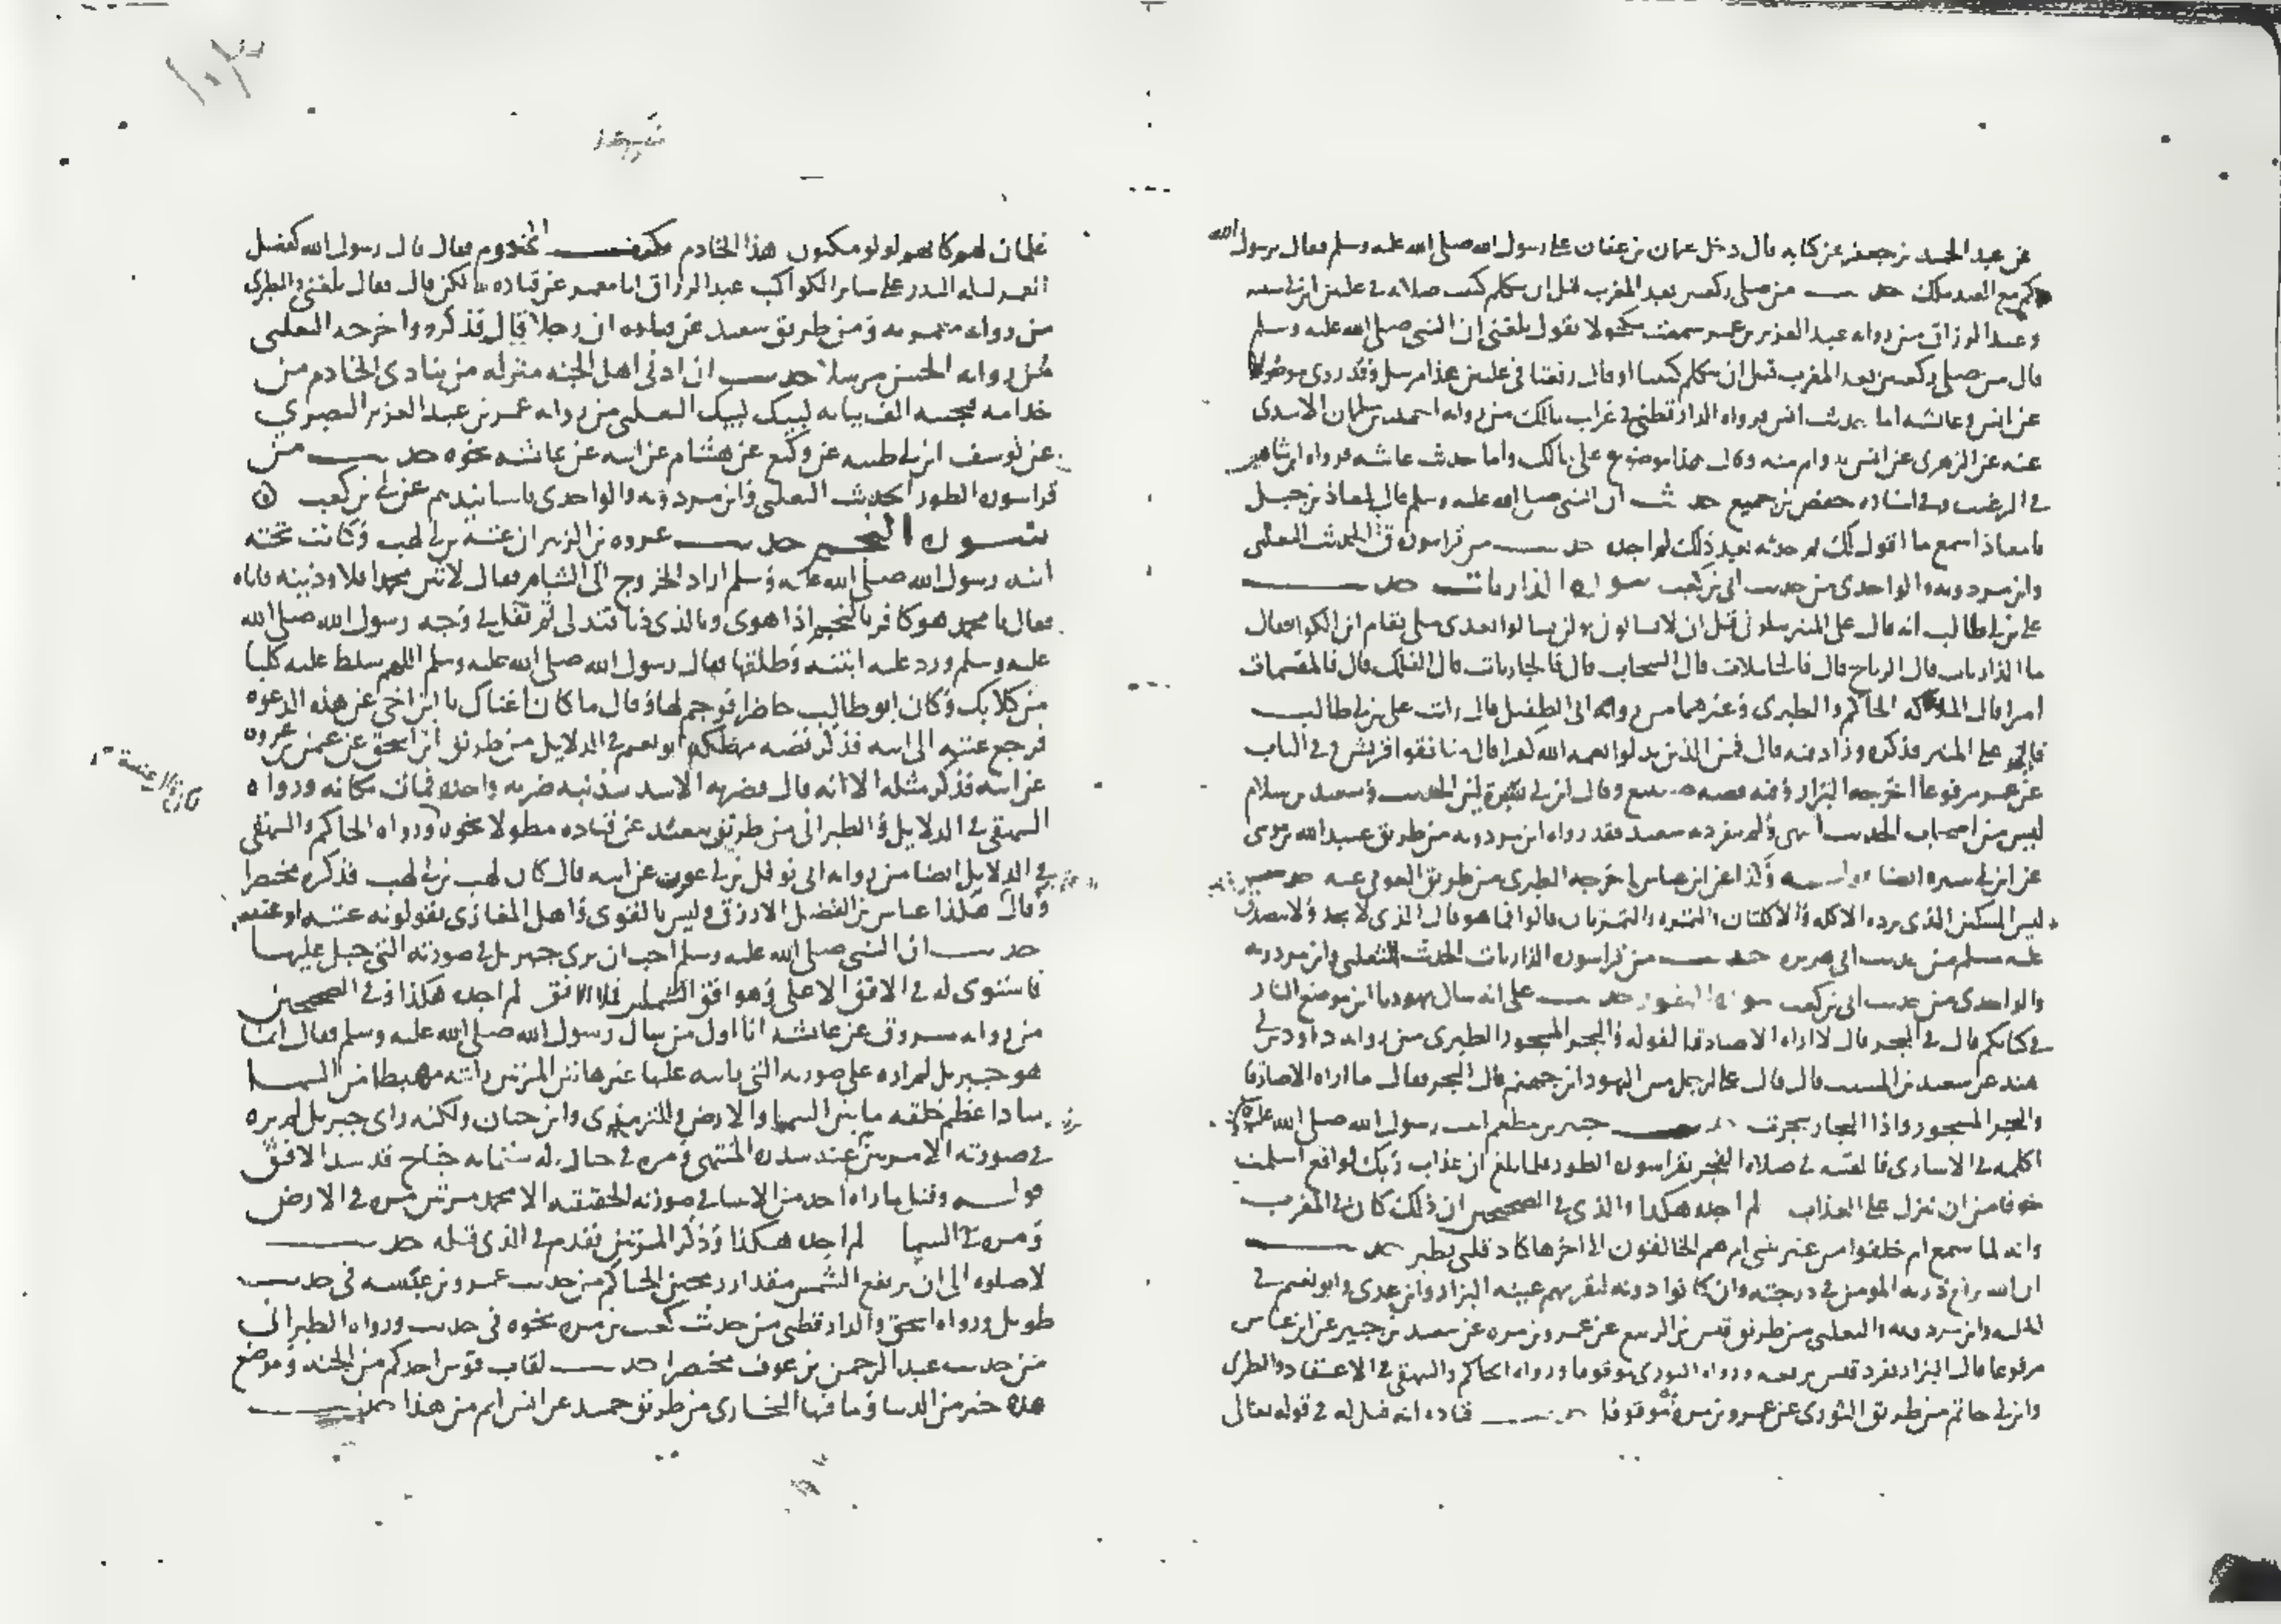 عن عبد الحميد بن جعفر عن كنانه قال دخل عثمان بن عفان على رسول الله صلى الله عليه وسلم فقال يرسول الله
كم مع العبد ملك حديث من صلى ركعتين بعد المغرب قبل ان يتكلم كتبت صلاته في عليين ابن ابي شيبه
وعبد الرزاق من روايه عبد العزيز بن عمر سمعت مكحولا يقول بلغني ان النبي صلى الله عليه وسلم
قال من صلى ركعتين بعد المغرب قبل ان يتكلم كتبتا او قال رفعتا في عليين هذا مرسل وقد روى موصولا
عن انس وعائشه اما حديث انس فرواه الدارقطني في غرايب مالك من روايه احمد بن سلمان الاسدي
عنه عن الزهري عن انس به واتم منه وقال هذا موضوع على مالك واما حديث عائشه فرواه ابن شاهين
في الترغيب وفي اسناده جعفر بن جميع حديث ان النبي صلى الله عليه وسلم قال لمعاذ بن جبل
يا معاذ اسمع ما اقول لك ثم حدثه بعد ذلك لم اجده حديث من قرا سوره ق الحديث الثعلبي
وابن مردويه والواحدي من حديث ابي بن كعب سوره الذاريات حديث
علي بن ابي طالب انه قال على المنبر سلوني قبل ان لا تسالوني ولن تسالوا بعدي مثلي فقام ابن الكوا فقال
ما الذاريات قال الرياح قال فالحاملات قال السحاب قال فالجاريات قال الفلك قال فالمقسمات
امرا قال الملائكه الحاكم والطبري وغيرهما من روايه ابي الطفيل قال رايت علي بن ابي طالب
قام على المنبر فذكره وزاد فيه قال فمن الذين بدلوا نعمه الله كفرا قال منافقوا قريش وفي الباب
عن عمر مرفوعا اخرجه البزار وفيه قصه صبيغ وقال ابن ابي سبرة لين الحديث وسعيد بن سلام
ليس من اصحاب الحديث انتهى ولم ينفرد به سعيد فقد رواه ابن مردويه من طريق عبيد الله بن موسى
عن ابن ابي سبره ايضا وكذا عن ابن عباس اخرجه الطبري من طريق العوفي عنه حديث
ليس المسكين الذي ترده الاكله والاكلتان والتمره والتمرتان قالوا فما هو قال الذي لا يجد ولا يتصدق
عليه مسلم من حديث ابي هريره حديث من قرا سوره الذاريات الحديث الثعلبي وابن مردويه
والواحدي من حديث ابي بن كعب سوره الطور حديث علي انه سال يهوديا اين موضع النار
في كتابكم قال في البحر قال لا اراه الا صادقا لقوله والبحر المسجور الطبري من روايه داود بن ابي
هند عن سعيد بن المسيب قال قال علي لرجل من اليهود اين جهنم قال البحر فقال ما اراه الا صادقا
والبحر المسجور واذا البحار سجرت حديث جبير بن مطعم اتيت رسول الله صلى الله عليه
اكلمه في الاسارى فالفيته في صلاه الفجر يقرا سوره الطور فلما بلغ ان عذاب ربك لواقع اسلمت
خوفا من ان ينزل على العذاب لم اجده هكذا والذي في الصحيحين ان ذلك كان في المغرب
وانه لما سمع ام خلقوا من غير شي ام هم الخالقون الى اخرها كاد قلبي يطير حديث
ان الله يرفع ذريه المومن في درجته وان كانوا دونه لتقر بهم عينه البزار وابن عدي وابو نعيم في
الحليه وابن مردويه والثعلبي من طريق قيس بن الربيع عن عمرو بن مره عن سعيد بن جبير عن ابن عباس
مرفوعا قال البزار تفرد قيس برفعه ورواه الثوري موقوفا ورواه الحاكم والبيهقي في الاعتقاد والطبري
وابن ابي حاتم من طريق الثوري عن عمرو بن مره موقوفا حديث قتاده انه قيل له في قوله تعالى
غلمان لهم كانهم لولو مكنون هذا الخادم فكيف المخدوم فقال قال رسول الله كفضل
القمر ليله البدر على ساير الكواكب عبد الرزاق انا معمر عن قتاده قال فقال بلغني والطبري
من روايه معمر به ومن طريق سعيد عن قتاده ان رجلا قال فذكره واخرجه الثعلبي
من روايه الحسن مرسلا حديث ان ادنى اهل الجنه منزله من ينادي الخادم من
خدامه فيجيبه الف ببابه لبيك لبيك الثعلبي من روايه عمر بن عبد العزيز البصري
عن يوسف ابن ابي طيبه عن وكيع عن هشام عن ابيه عن عائشه نحوه حديث من
قرا سوره الطور الحديث الثعلبي وابن مردويه والواحدي باسانيدهم عن ابي بن كعب
سوره النجم حديث عروه بن الزبير ان عتبه بن ابي لهب وكانت تحته
ابنه رسول الله صلى الله عليه وسلم اراد الخروج الى الشام فقال لاتين محمدا فلاوذينه فاتاه
فقال يا محمد هو كافر بالنجم اذا هوى وبالذي دنا فتدلى ثم تفل في وجه رسول الله صلى الله
عليه وسلم ورد عليه ابنته وطلقها فقال رسول الله صلى الله عليه وسلم اللهم سلط عليه كلبا
من كلابك وكان ابو طالب حاضرا فوجم لها وقال ما كان اغناك يا ابن اخي عن هذه الدعوه
فرجع عتبه الى ابيه فذكر قصه مهلكه ابو نعيم في الدلايل من طريق ابن اسحق عن عثمن بن عروه
عن ابيه فذكر مثله الا انه قال فضربه الاسد بذنبه ضربه واحده فمات مكانه ورواه
البيهقي في الدلايل والطبراني من طريق سعيد عن قتاده مطولا نحوه ورواه الحاكم والبيهقي
في الدلايل ايضا من روايه ابي نوفل بن ابي عقرب عن ابيه قال كان لهب بن ابي لهب فذكره مختصرا
وقال هكذا عباس بن الفضل الازرق وليس بالقوي واهل المغازي يقولونه عتبه او عتيبه
حديث ان النبي صلى الله عليه وسلم احب ان يرى جبريل في صورته التي جبل عليها
فاستوى له في الافق الاعلى وهو افق الشمس فملا الافق لم اجده هكذا وفي الصحيحين
من روايه مسروق عن عائشه انا اول من سال رسول الله صلى الله عليه وسلم فقال انما
هو جبريل لم اره على صورته التي رايته عليها غير هاتين المرتين رايته مهبطا من السما
سادا عظم خلقه ما بين السما والارض وللترمذي وابن حبان ولكنه راى جبريل لم يره
في صورته الا مرتين عند سدره المنتهى ومره في جياد له ستمايه جناح قد سد الافق
قوله وقيل ما راه احد من الانبيا في صورته الحقيقيه الا محمد مرتين مره في الارض
ومره في السما لم اجده هكذا وذكر المرتين تقدم في الذي قبله حديث
لا صلوه الى ان ترتفع الشمس مقدار رمحين الحاكم من حديث عمرو بن عبسه في حديث
طويل ورواه اسحق والدارقطني من حديث كعب بن مره نحوه في حديث ورواه الطبراني
من حديث عبد الرحمن بن عوف مختصرا حديث لقاب قوس احدكم من الجنه وموضع
قده خير من الدنيا وما فيها البخاري من طريق حميد عن انس اتم من هذا حديث